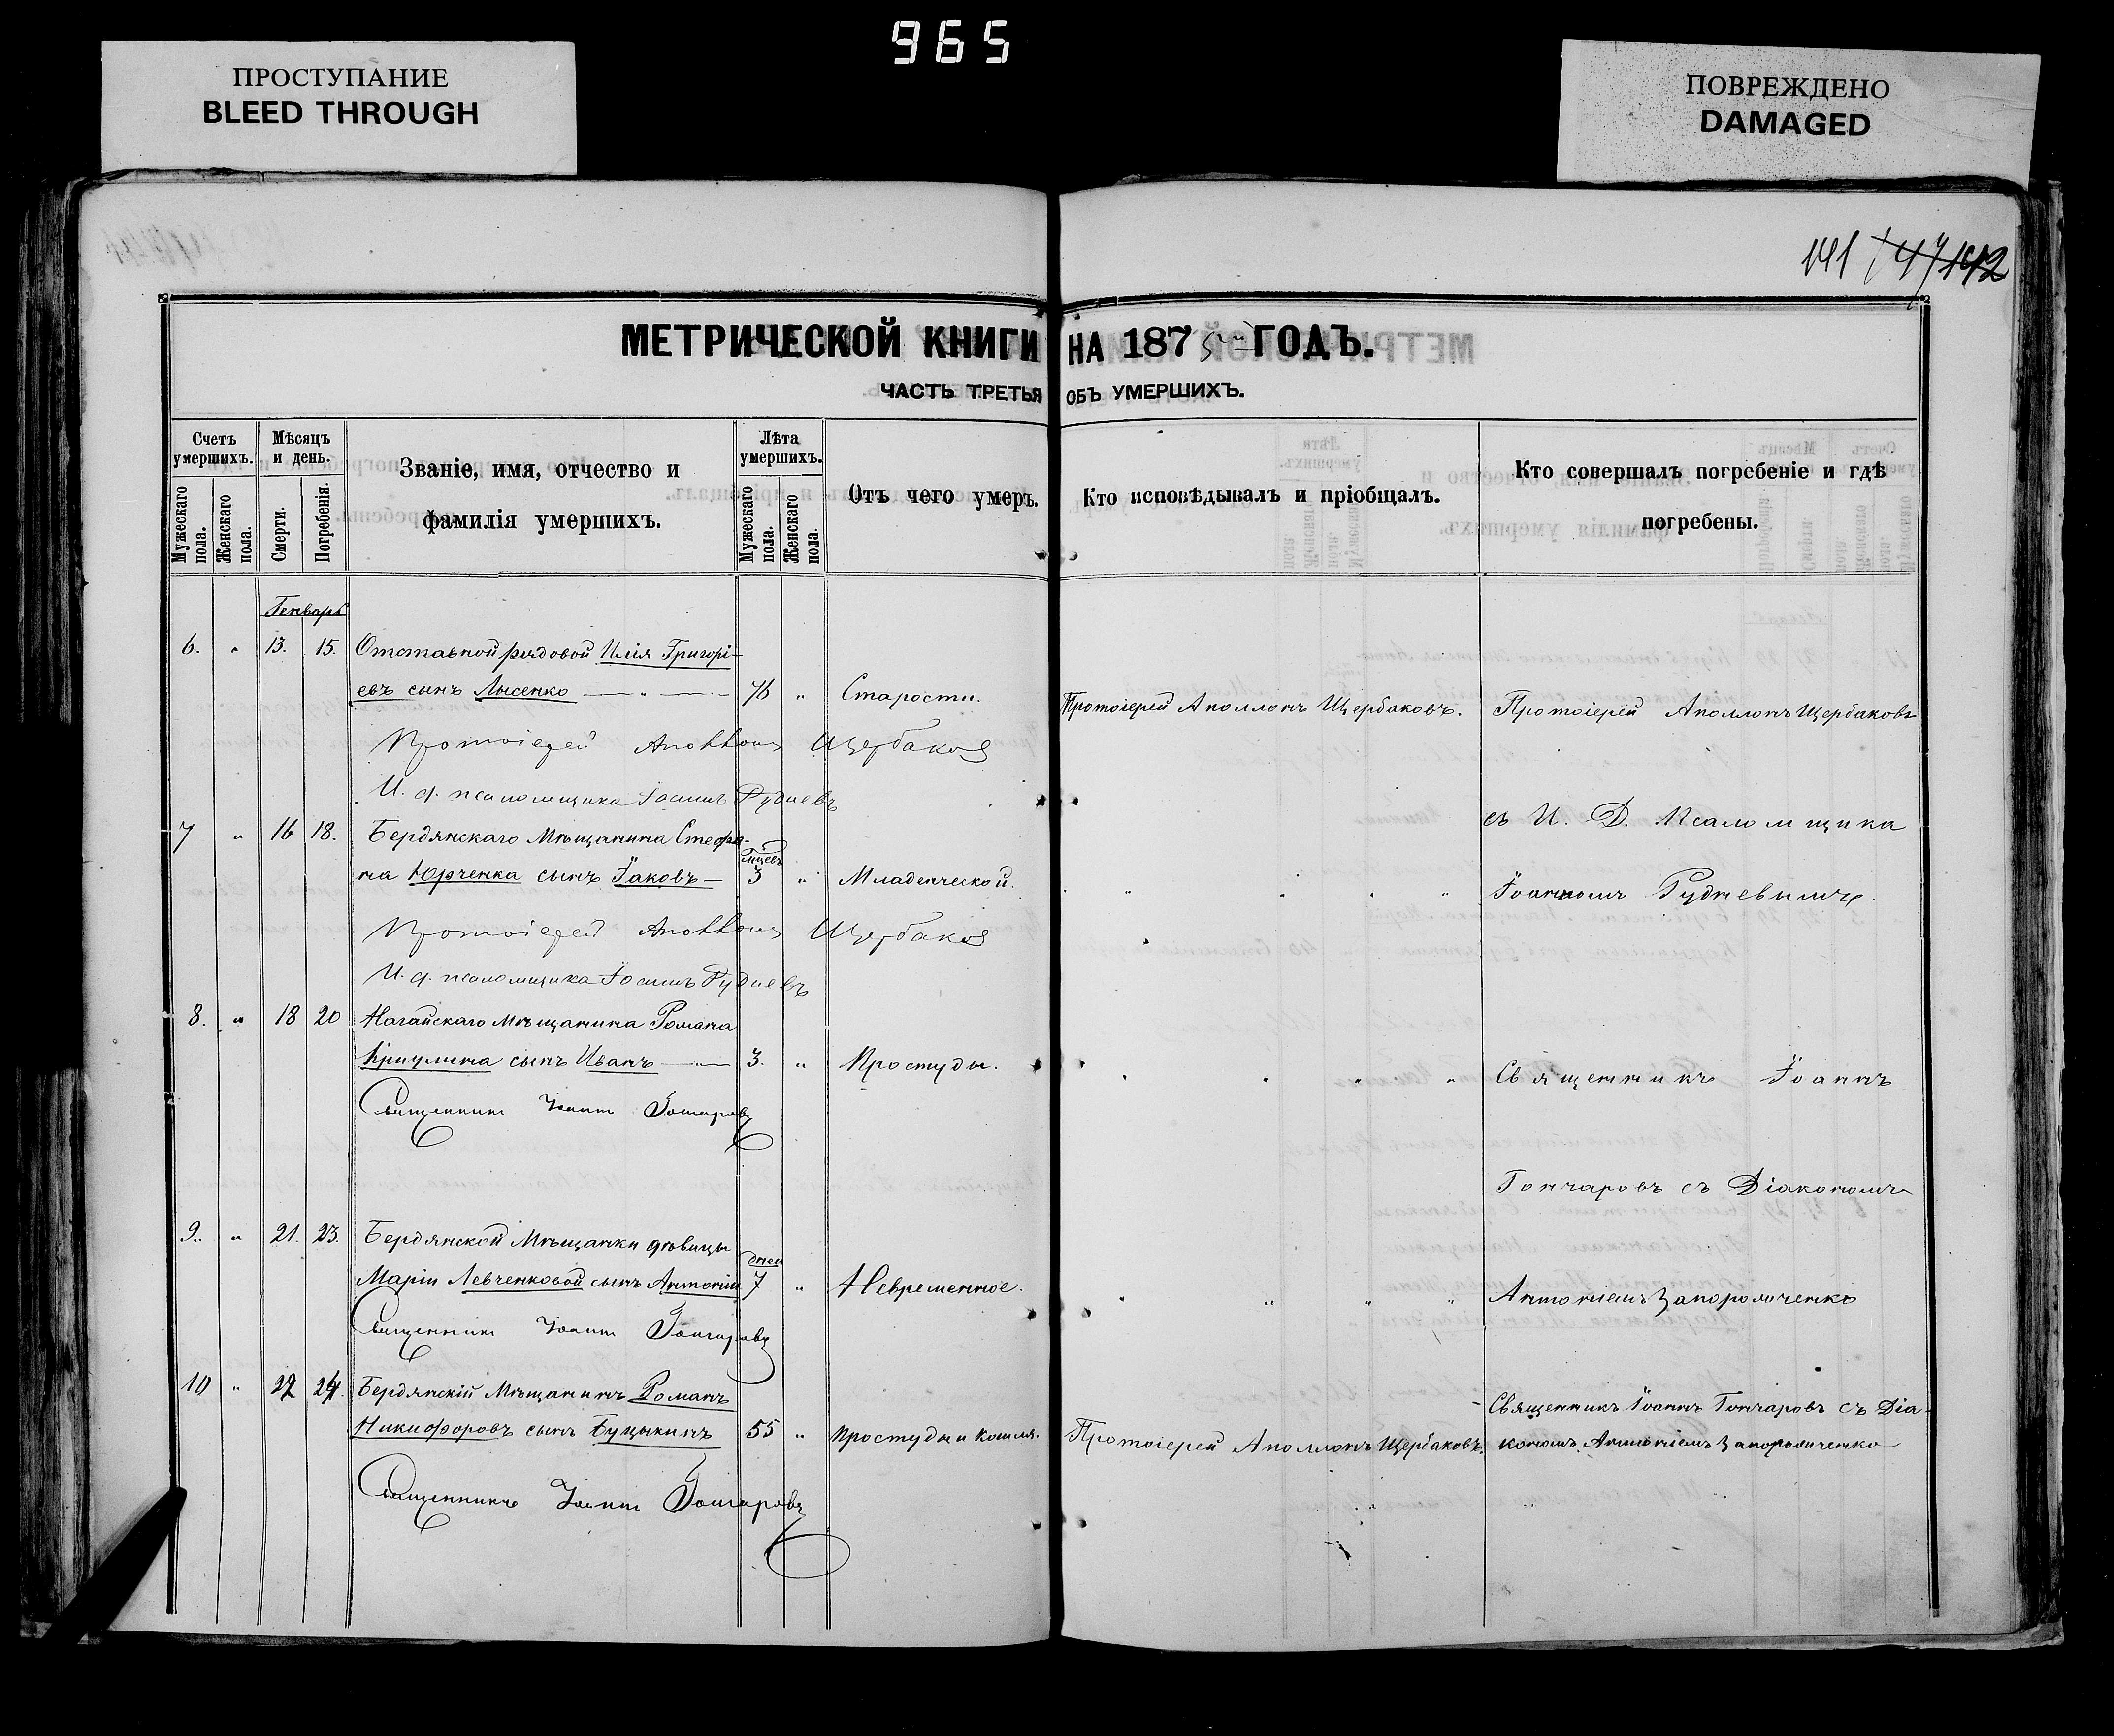 965
ПРОСТУПАНИЕ
BLEED THROUGH
ПОВРЕЖДЕНО
DAMAGED
141 147 142
МЕТРИЧЕСКОЙ КНИГИ НА 1875 ГОДЪ.
ЧАСТЬ ТРЕТЬЯ ОБЪ УМЕРШИХЪ.
Счетъ умершихъ.
Мужескаго пола.
Женскаго пола.
Мѣсяцъ и день.
Смерти.
Погребенія.
Званіе, имя, отчество и
фамилія умершихъ.
Лѣта умершихъ.
Мужескаго пола.
Женскаго пола.
Отъ чего умеръ.
Кто исповѣдывалъ и пріобщалъ.
Кто совершалъ погребеніе и гдѣ
погребены.
Генварь
6. " 13. 15. Отставной рядовой Илія Григорі-
евъ сынъ Лысенко — " — 76 " Старости. Протоіерей Аполлонъ Щербаковъ. Протоіерей Аполлонъ Щербаковъ
Протоіерей Аполлонъ Щербаковъ
И. д. псаломщика Іоаннъ Рудневъ
съ И. Д. Псаломщика
7 " 16 18. Бердянскаго Мѣщанина Стефа-
мцевъ
на Юрченка сынъ Іаковъ — 3 " Младенческой. " " " " Іоанномъ Рудневымъ.
Протоіерей Аполлонъ Щербаковъ
И. д. псаломщика Іоаннъ Рудневъ
8. " 18 20 Нагайскаго Мѣщанина Романа
Криулина сынъ Иванъ — " — 3. " Простуды. " " " " Священникъ Іоаннъ
Священникъ Іоаннъ Гончаровъ
Гончаровъ съ Діакономъ
9. " 21. 23. Бердянской Мѣщанки дѣвицы
дней
Маріи Левченковой сынъ Антоній 7 " Невременное. " " " " Антоніемъ Запорожченко
Священникъ Іоаннъ Гончаровъ
10 " 22 24. Бердянскій Мѣщанинъ Романъ
Священникъ Іоаннъ Гончаровъ съ Діа-
Никифоровъ сынъ Буцыкинъ 55 " Простуды и кашля. Протоіерей Аполлонъ Щербаковъ. кономъ Антоніемъ Запорожченко
Священникъ Іоаннъ Гончаровъ